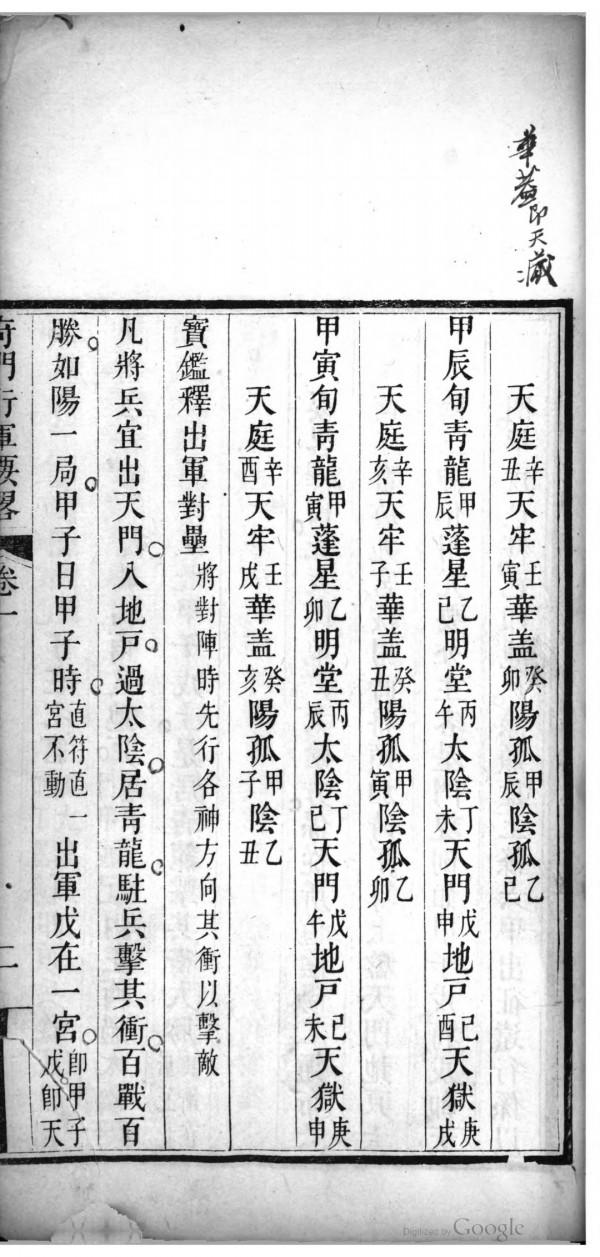 華蓋即天藏
天庭辛丑天牢壬寅華盖癸卯陽孤甲辰陰孤乙巳
甲辰旬青龍甲辰蓬星乙巳明堂丙午太陰丁未天門戊申地戶己酉天獄庚戌
天庭辛亥天牢壬子華盖癸丑陽孤甲寅陰孤乙卯
甲寅旬青龍甲寅蓬星乙卯明堂丙辰太陰丁巳天門戊午地戶己未天獄庚申
天庭辛酉天牢壬戌華盖癸亥陽孤甲子陰孤乙丑
寶鑑釋出軍對壘將對陣時先行各神方向其衝以擊敵
凡將兵宜出天門入地戶過太陰居青龍駐兵擊其衝百戰百
勝如陽一局甲子日甲子時直符直宮不動一出軍戊在一宮卽甲子戊卽天
奇門行軍要畧 卷一 二
Digitized by Google